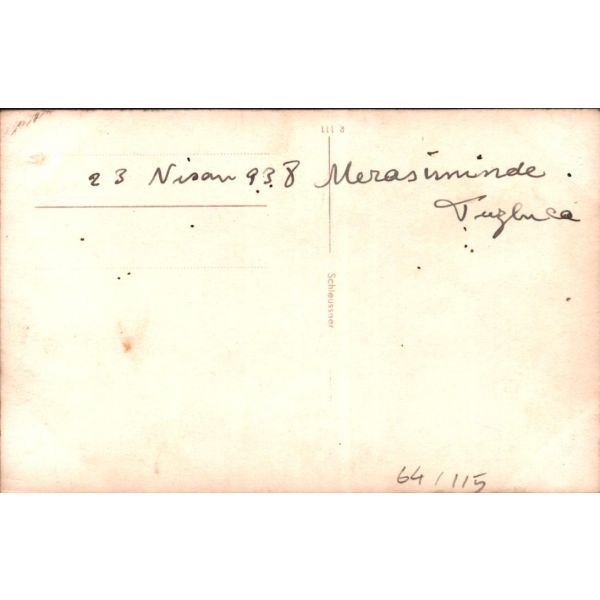 R 111
23 Nisan 938 Merasiminde.
Tuzluca
Schleussner
64/115